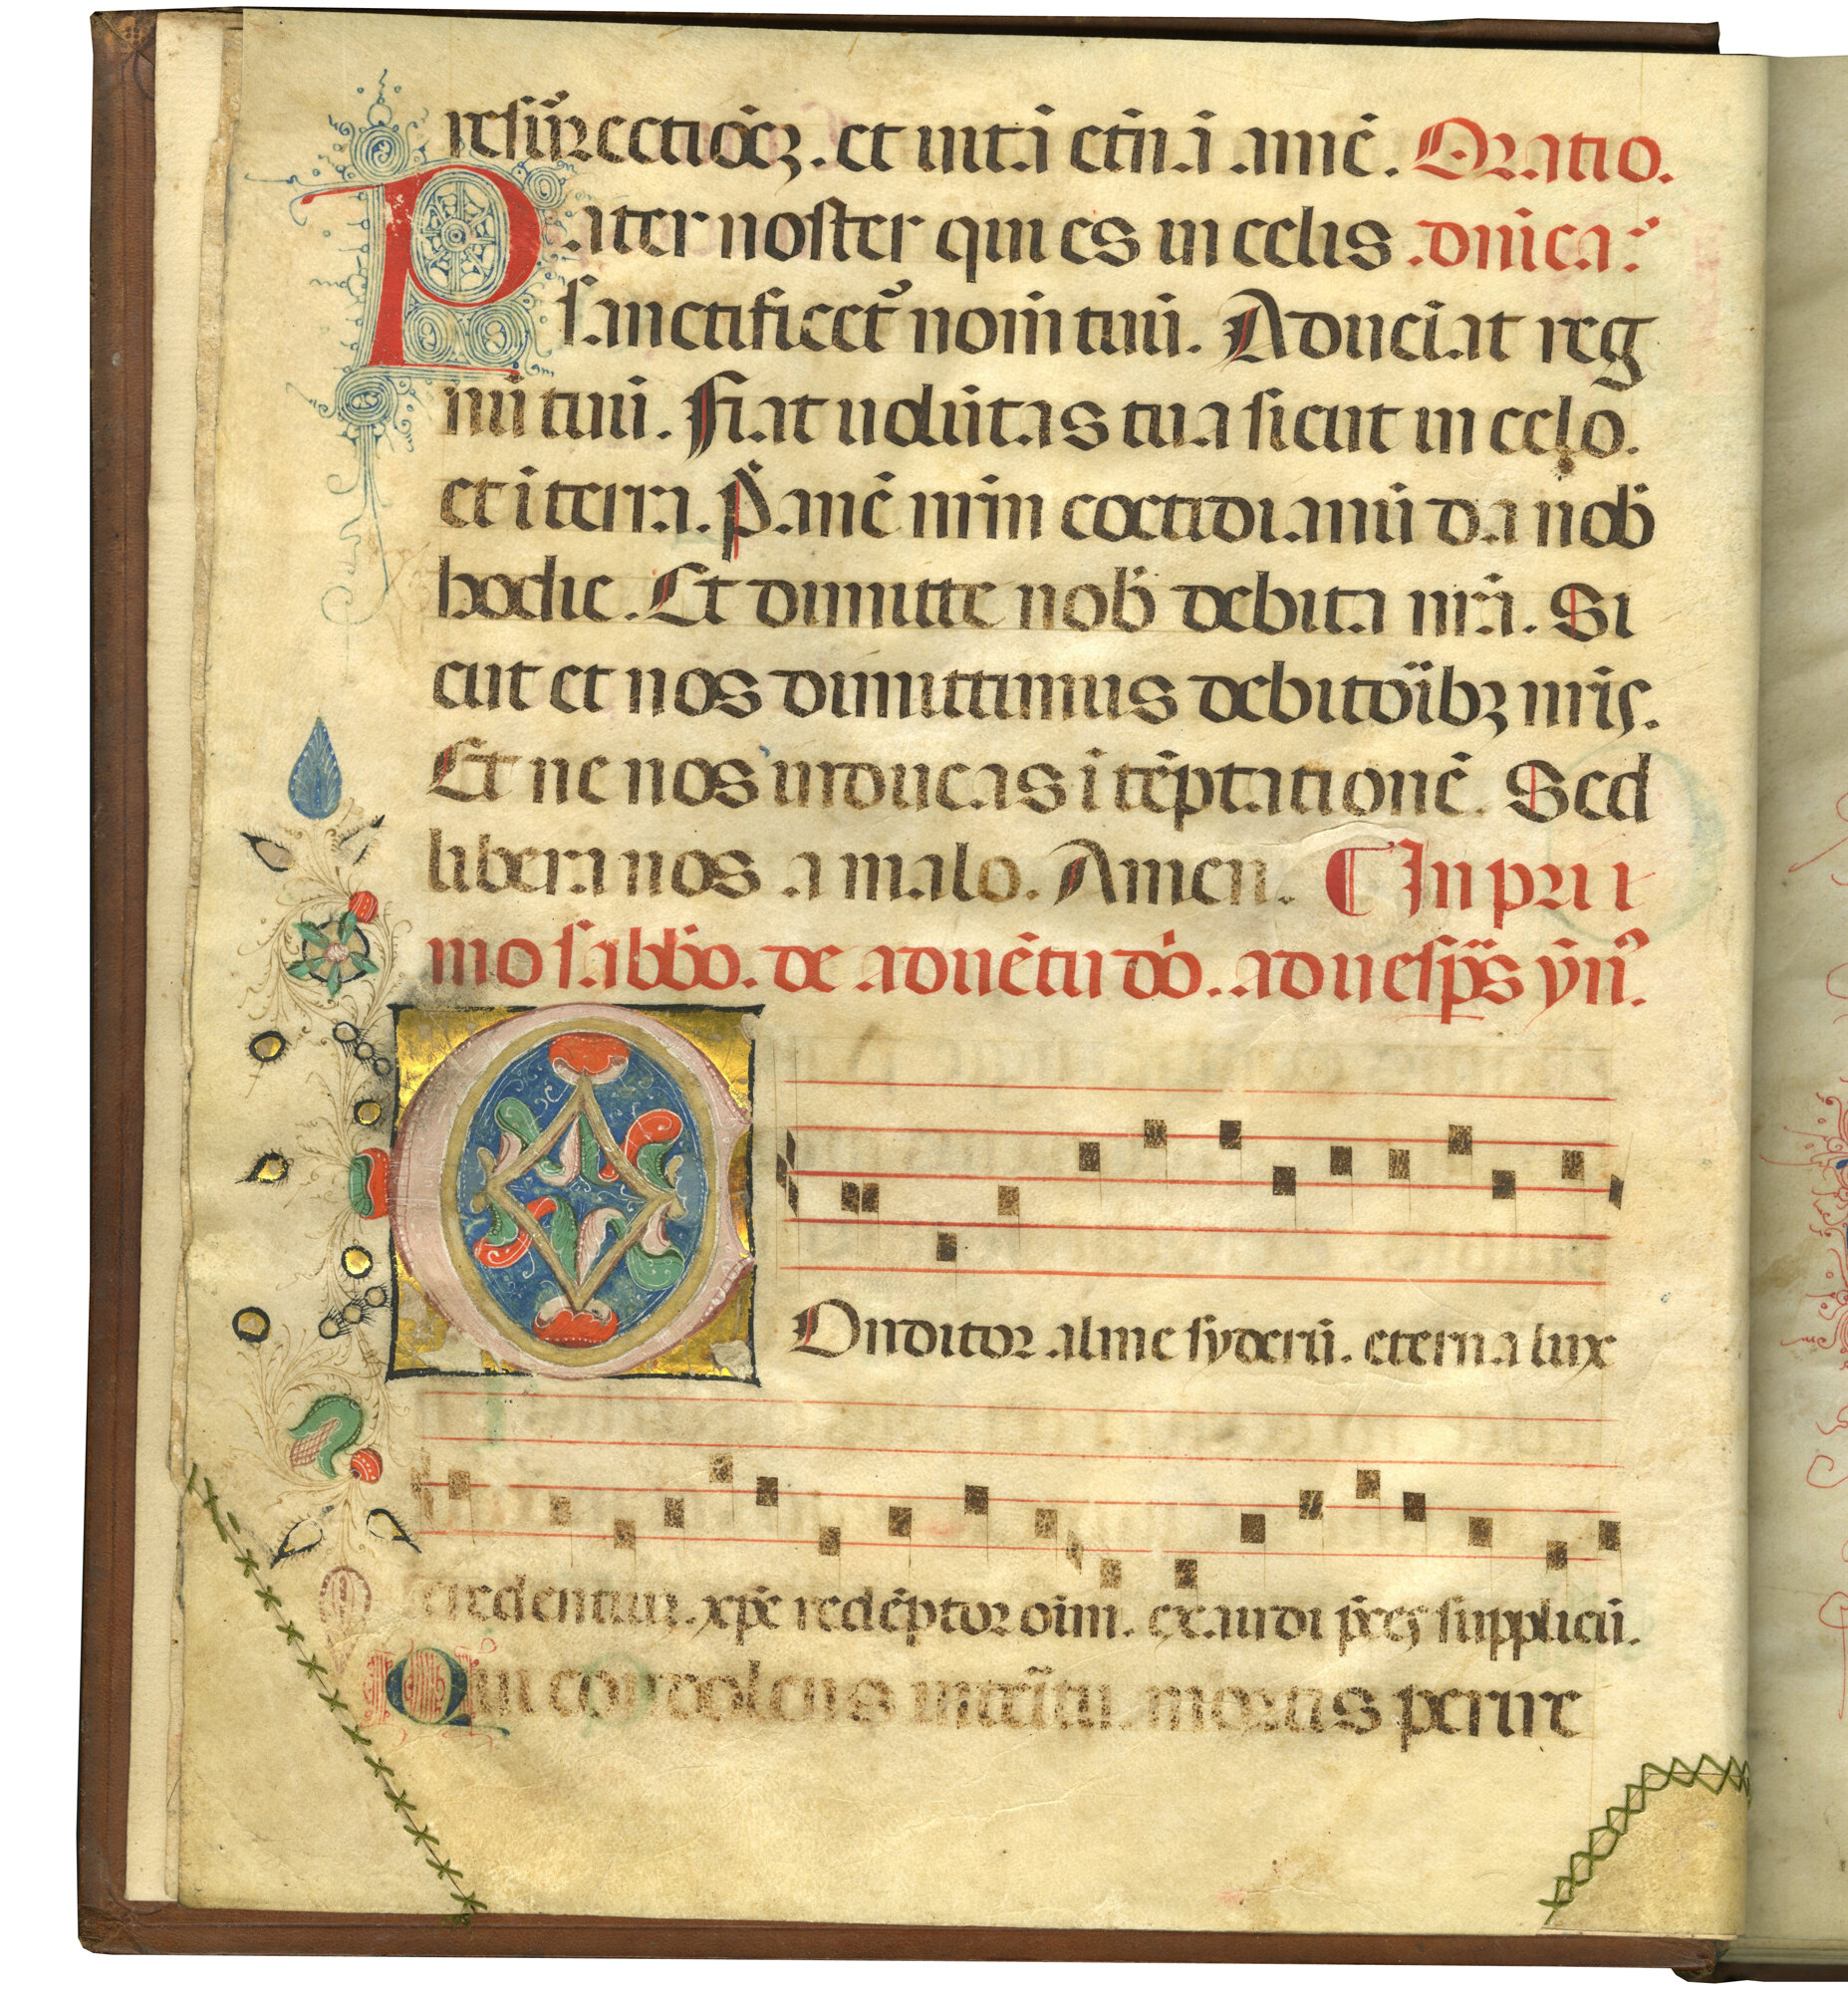 resur̄rectiōēꝫ. et uitā et̄nā amē. Oratio
Pater noster qui es in celis .dnica.
sanctificet᷑ nom̄ tuū. Adueīat reg
nū tuū. Fiat uolūtas tua sicut in celo.
et ī terra. Panē nr̄m cotidianū da nob̄
hodie. Et dimitte nob̄ debita nrā. Si
cut et nos dimittimus debitoribꝫ nr̄is.
Et ne nos inducas ī tēptationē. Sed
libera nos a malo. Amen. ¶ In pri
mo sabbo. de aduētu do. ad uesp̄s ẏn᷑.
Onditor alme syderū. eterna lux
credentiuꝝ. xp̄e redēptor oīm. exaudi p̄ces supplicū.
Qui condolens interītu mortis perire